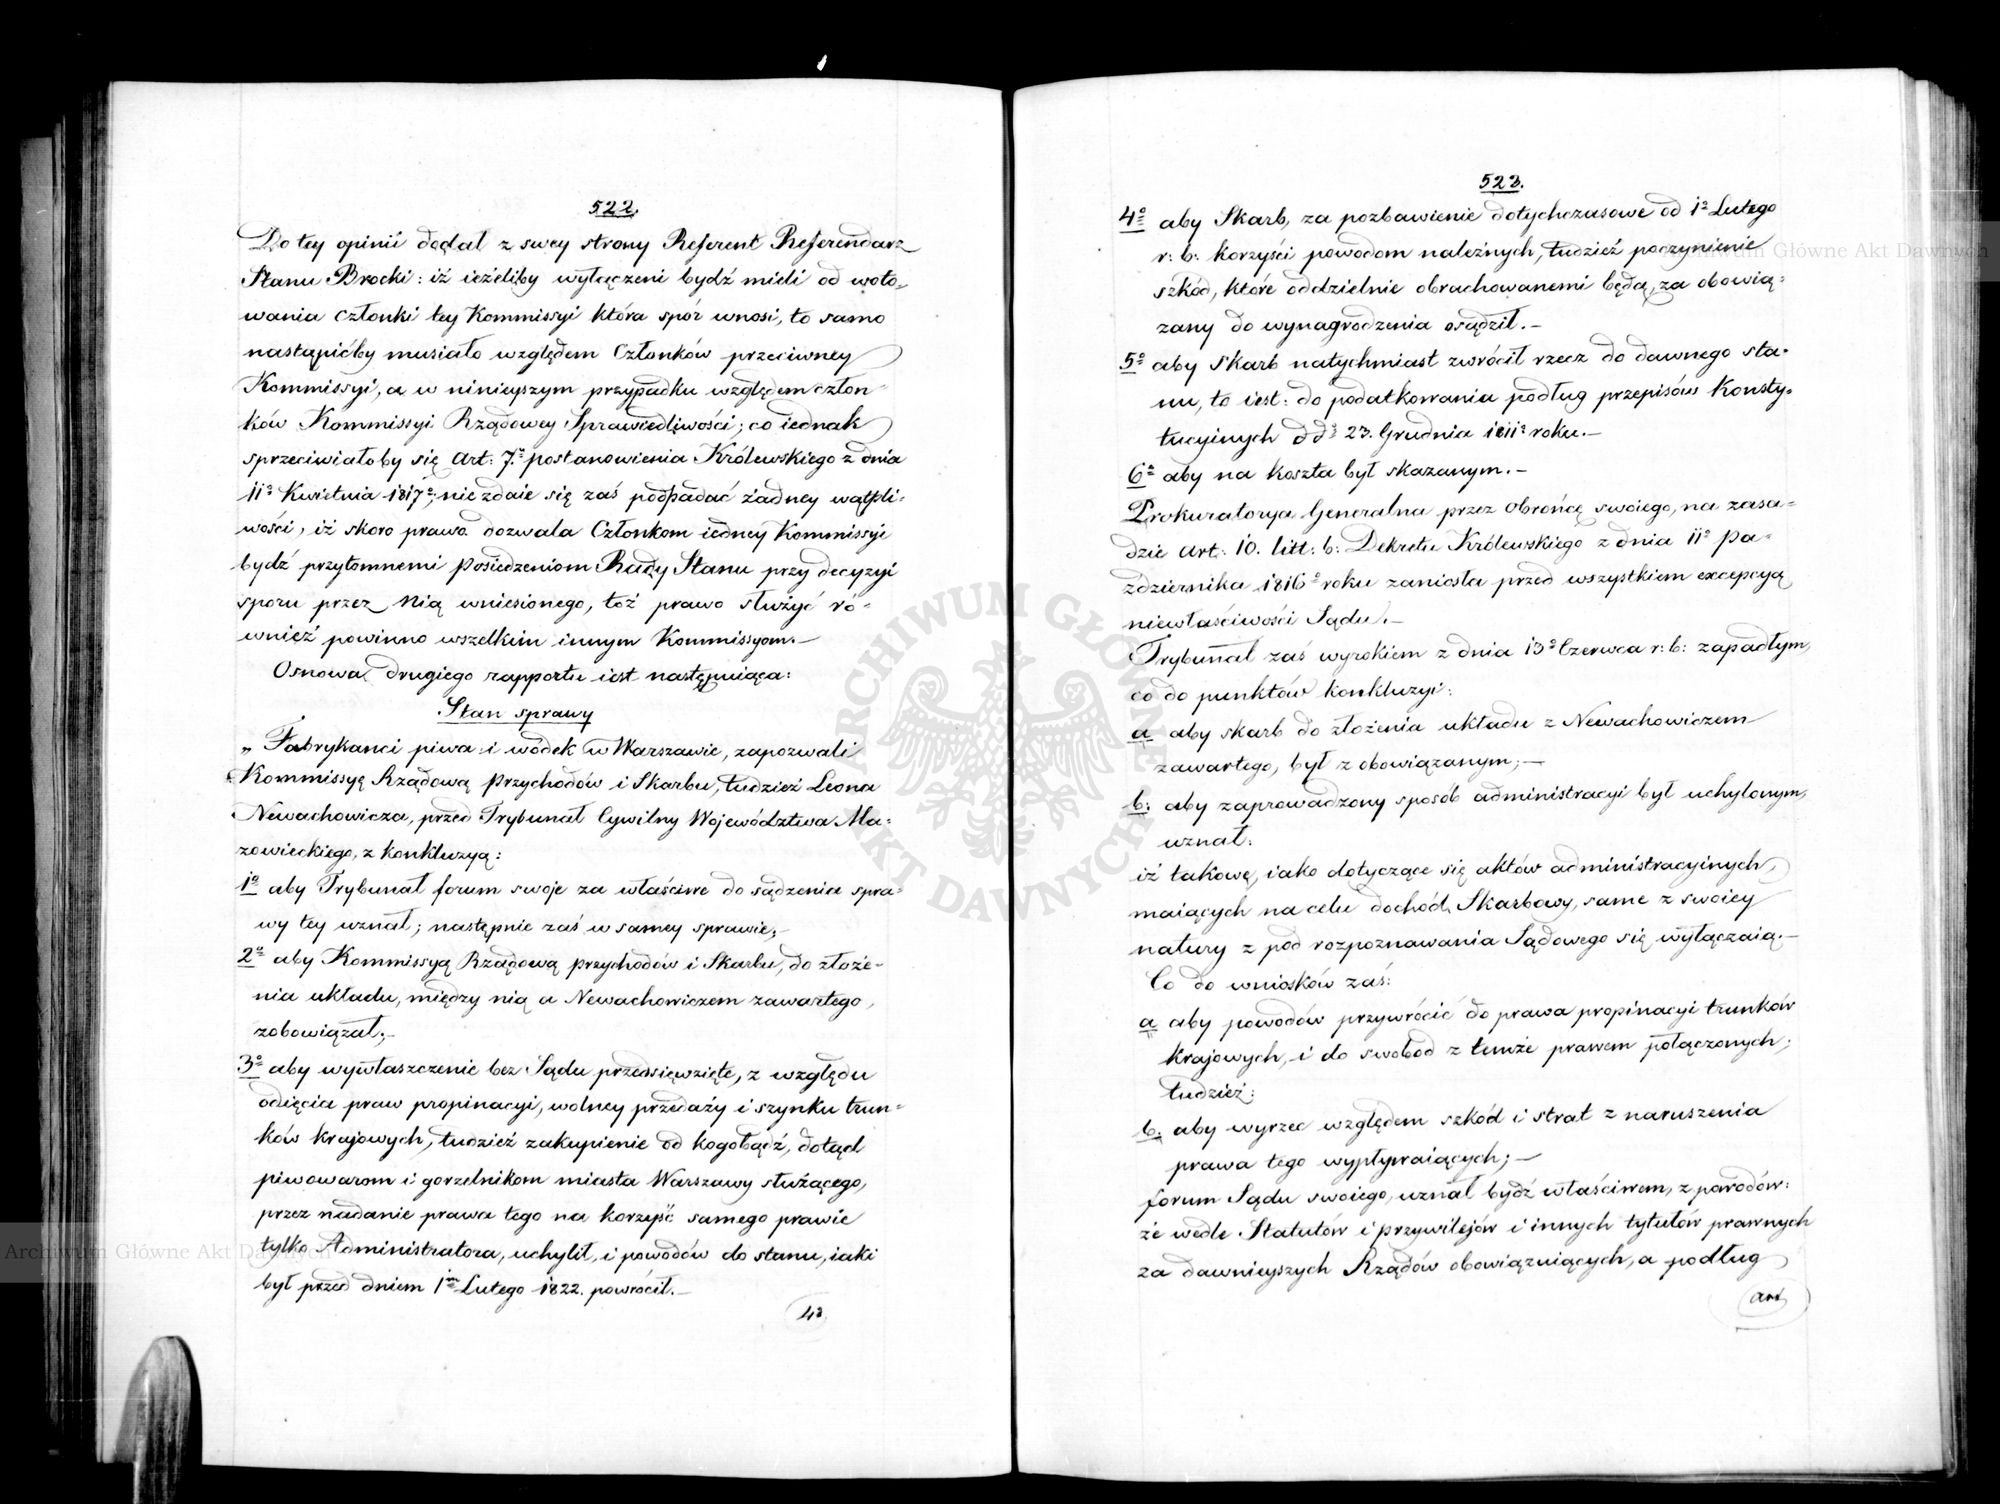 522.
Do tey opinii dodał z swey strony Referent Referendarz
Stanu Brocki: iż ieżeliby wyłączeni bydź mieli od woto-
wania Członki tey Kommissyi która spór wnosi, to samo
nastąpićby musiało względem Członków przeciwney
Kommissyi, a w ninieyszym przypadku względem człon-
ków Kommissyi Rządowey Sprawiedliwości; co iednak
sprzeciwiałoby się Art: 7.º postanowienia Królewskiego z dnia
11º Kwietnia 1817º; nie zdaie się zaś podpadać żadney wątpli-
wości, iż skoro prawo dozwala Członkom iedney Kommissyi
bydź przytomnemi Posiedzeniom Rady Stanu przy decyzyi
sporu przez Nią wniesionego, toż prawo służyć ró-
wnież powinno wszelkim innym Kommissyom.—
Osnowa drugiego rapportu iest następuiąca:
Stan sprawy
„ Fabrykanci piwa i wódek w Warszawie, zapozwali
Kommissyę Rządową Przychodów i Skarbu, tudzież Leona
Newachowicza, przed Trybunał Cywilny Województwa Ma-
zowieckiego, z konkluzyą:
1º aby Trybunał forum swoje za właściwe do sądzenia spra-
wy tey uznał; następnie zaś w samey sprawie;—
2º aby Kommissyą Rządową przychodów i Skarbu, do złoże-
nia układu, między nią a Newachowiczem zawartego,
zobowiązał;—
3º aby wywłaszczenie bez Sądu przedsięwzięte, z względu
odięcia praw propinacyi, wolney przedaży i szynku trun-
ków krajowych, tudzież zakupienie od kogobądź, dotąd
piwowarom i gorzelnikom miasta Warszawy służącego,
przez nadanie prawa tego na korzyść samego prawie
tylko Administratora, uchylił, i powodów do stanu, iaki
był przed dniem 1m Lutego 1822. powrócił.—
4º
523.
4º aby Skarb, za pozbawienie dotychczasowe od 1º Lutego
r: b: korzyści powodom należnych, tudzież poczynienie
szkód, które oddzielnie obrachowanemi będą, za obowią-
zany do wynagrodzenia osądził.—
5º aby Skarb natychmiast zwrócił rzecz do dawnego sta-
nu, to iest: do podatkowania podług przepisów Konsty-
tucyinych dd: 23. Grudnia 1811º roku.—
6º aby na koszta był skazanym.—
Prokuratorya Generalna przez Obrońcę swoiego, na zasa-
dzie Art: 10. litt: b: Dekretu Królewskiego z dnia 11º Pa-
ździernika 1816º roku zaniosła przed wszystkiem excepcyą
niewłaściwości Sądu.—
Trybunał zaś wyrokiem z dnia 13º Czerwca r: b: zapadłym,
co do punktów konkluzyi:
a aby skarb do złożenia układu z Newachowiczem
zawartego, był z obowiązanym;—
b: aby zaprowadzony sposób administracyi był uchylonym,
uznał:
iż takowe, iako dotyczące się aktów administracyinych,
maiących na celu dochód Skarbowy, same z swoiey
natury z pod rozpoznawania Sądowego się wyłączaią.—
Co do wniosków zaś:
a aby powodów przywrócić do prawa propinacyi trunków
krajowych, i do swobód z temże prawem połączonych;
tudzież:
b. aby wyrzec względem szkód i strat z naruszenia
prawa tego wypływaiących;—
forum Sądu swoiego, uznał bydź właściwem, z powodów:
że wedle Statutów i przywilejów i innych tytułów prawnych
za dawnieyszych Rządów obowiązuiących, a podług
art
Archiwum Główne Akt Dawnych
Archiwum Główne Akt Dawnych
ARCHIWUM GŁÓWNE
AKT DAWNYCH